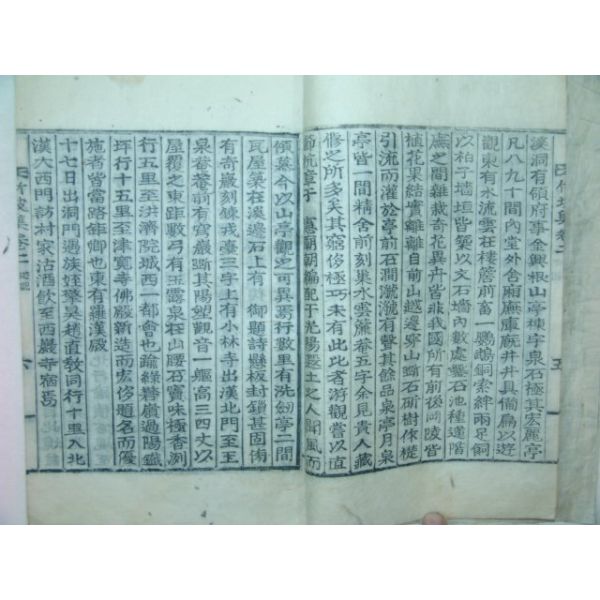 溪洞有領府事金興根山亭棟宇泉石極其宏麗亭
凡八九十間內堂外舍廂廡庫廐井井具備扁以遊
觀東有水流雲在樓簷前畜一鸚鵡銅索絆兩足飼
以柏子墻垣皆築以文石墻內數處鑿石池種蓮階
庭之間雜栽奇花異卉皆非我國所有前後岡陵皆
植花果結實離離亭前山越邊穿山斲石斫樹作樋
引流而灌於亭前石澗瀧瀧有聲其餘品泉亭月泉
亭皆一間精舍前刻巢水雲簾巷五字余見貴人藏
修之所多矣其窮侈極巧未有此比者游觀嘗以直
節忤 憲廟朝編配于光陽 土之人聞風而
傾慕今以山亭觀之可異焉行數里有洗劍亭二間
瓦屋築在溪邊石上有 御題詩懸板封鎖甚固南
有奇巖刻鍊戎臺三字上有小林寺出漢北門至玉
泉菴菴前有窟斲其陽塑觀音一軀高三四丈以
屋覆之東距數弓有玉靈泉在山腰石竇味極香冽
行五里至洪濟院城西一都會也踰綠礬嶺過陽鐵
坪行十五里至津寬寺佛殿新造而宏侈題名而優
施者皆當路鉅卿也東有羅漢殿
十七日出洞門遇族姪擎吳趙直敎同行十里入北
漢大西門訪村家沽酒飮至西巖寺宿焉
竹坡集卷二
竹坡集卷二
五
六